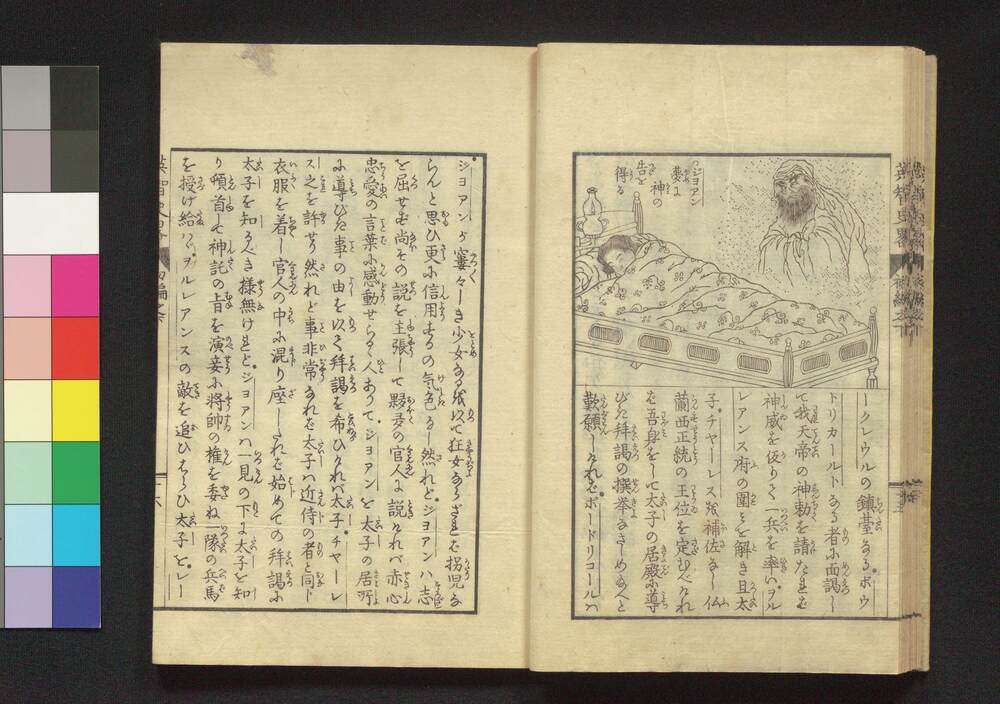 ジヨアン
夢に
神の
告を
得る
ークレウルの鎮䑓なるボウ
ドリカールトなる者に面謁し
て我天帝の神勅を請たれば
神威を仮りて一兵を率いヲル
レアンス府の圍ミを解き且太
子チヤーレスを補佐なし仏
蘭西正統の王位を定むべけれ
ば吾身をして太子の居殿に導
びき拜謁の撰挙なさしめ給へと
歎願しけれどボードリコールハ
ジヨアンが窶々しき少女なるを以て狂女ならざれば拐児な
らんと思ひ更に信用するの気色なし然れどジヨアンハ志
を屈せず尚その説を主張して夥多の官人に説けれバ赤心
忠愛の言葉に感動せらるゝ人ありてジヨアンを太子の居所
に導びき事の由を以て拜謁を希ひけれバ太子チヤーレ
ス之を許せり然れど事非常なれば太子ハ近侍の者と同じ
衣服を着し官人の中に混り座しければ始めての拜謁に
太子を知るべき様無けれどジヨアンハ一見の下に太子を知
り頓首して神託の旨を演妾に将帥の權を委ね一隊の兵馬
を授け給ハヾヲルレアンスの敵を追ひはらひ太子をレー
六